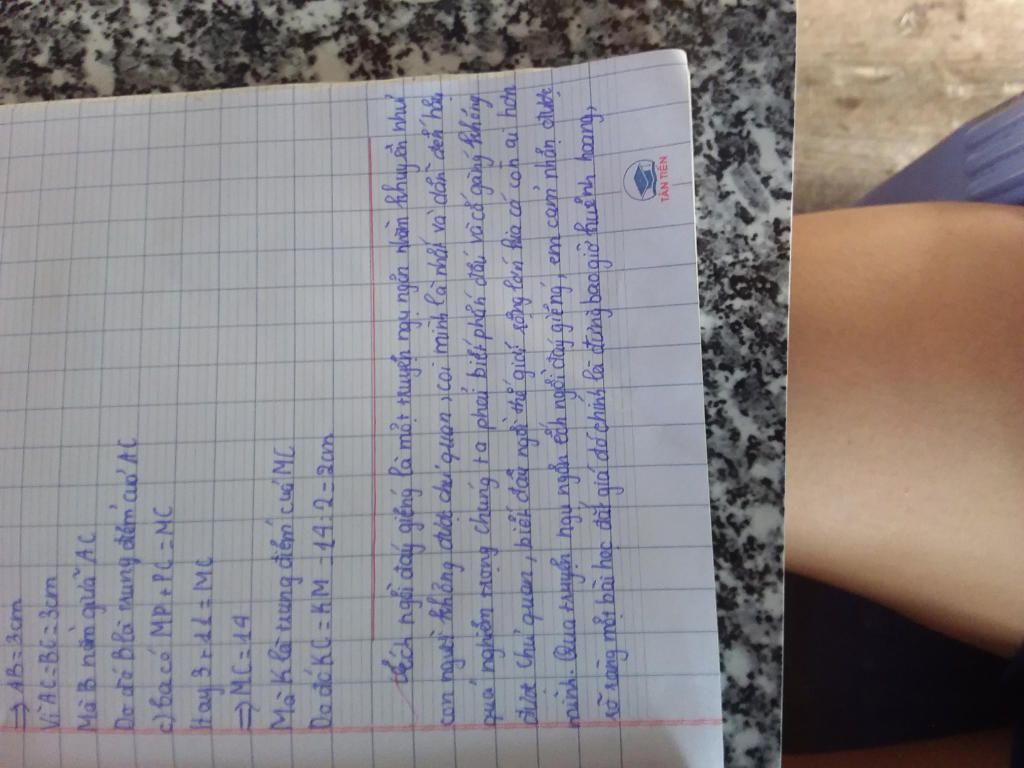 => AB = 3cm
Vì AC = BC = 3cm
Mà B nằm giữa AC
Do đó B là trung điểm của AC
c) ta có MP + PC = MC
Hay 3 + 11 = MC
=> MC = 14
Mà K là trung điểm của MC
Do đó KC = KM = 14 : 2 = 2cm
ếch ngồi đáy giếng là một truyện ngụ ngôn nhằm khuyên nhủ
con người không được chủ quan, coi mình là nhất và dẫn đến hậu
quả nghiêm trọng chúng ta phải biết phấn đấu và cố gắng không
được chủ quan, biết đâu ngoài thế giới rộng lớn kia có còn ai hơn
mình. Qua truyện ngụ ngôn ếch ngồi đáy giếng, em cảm nhận được
rõ ràng một bài học đắt giá đó chính là đừng bao giờ huênh hoang,
TÂN TIẾN